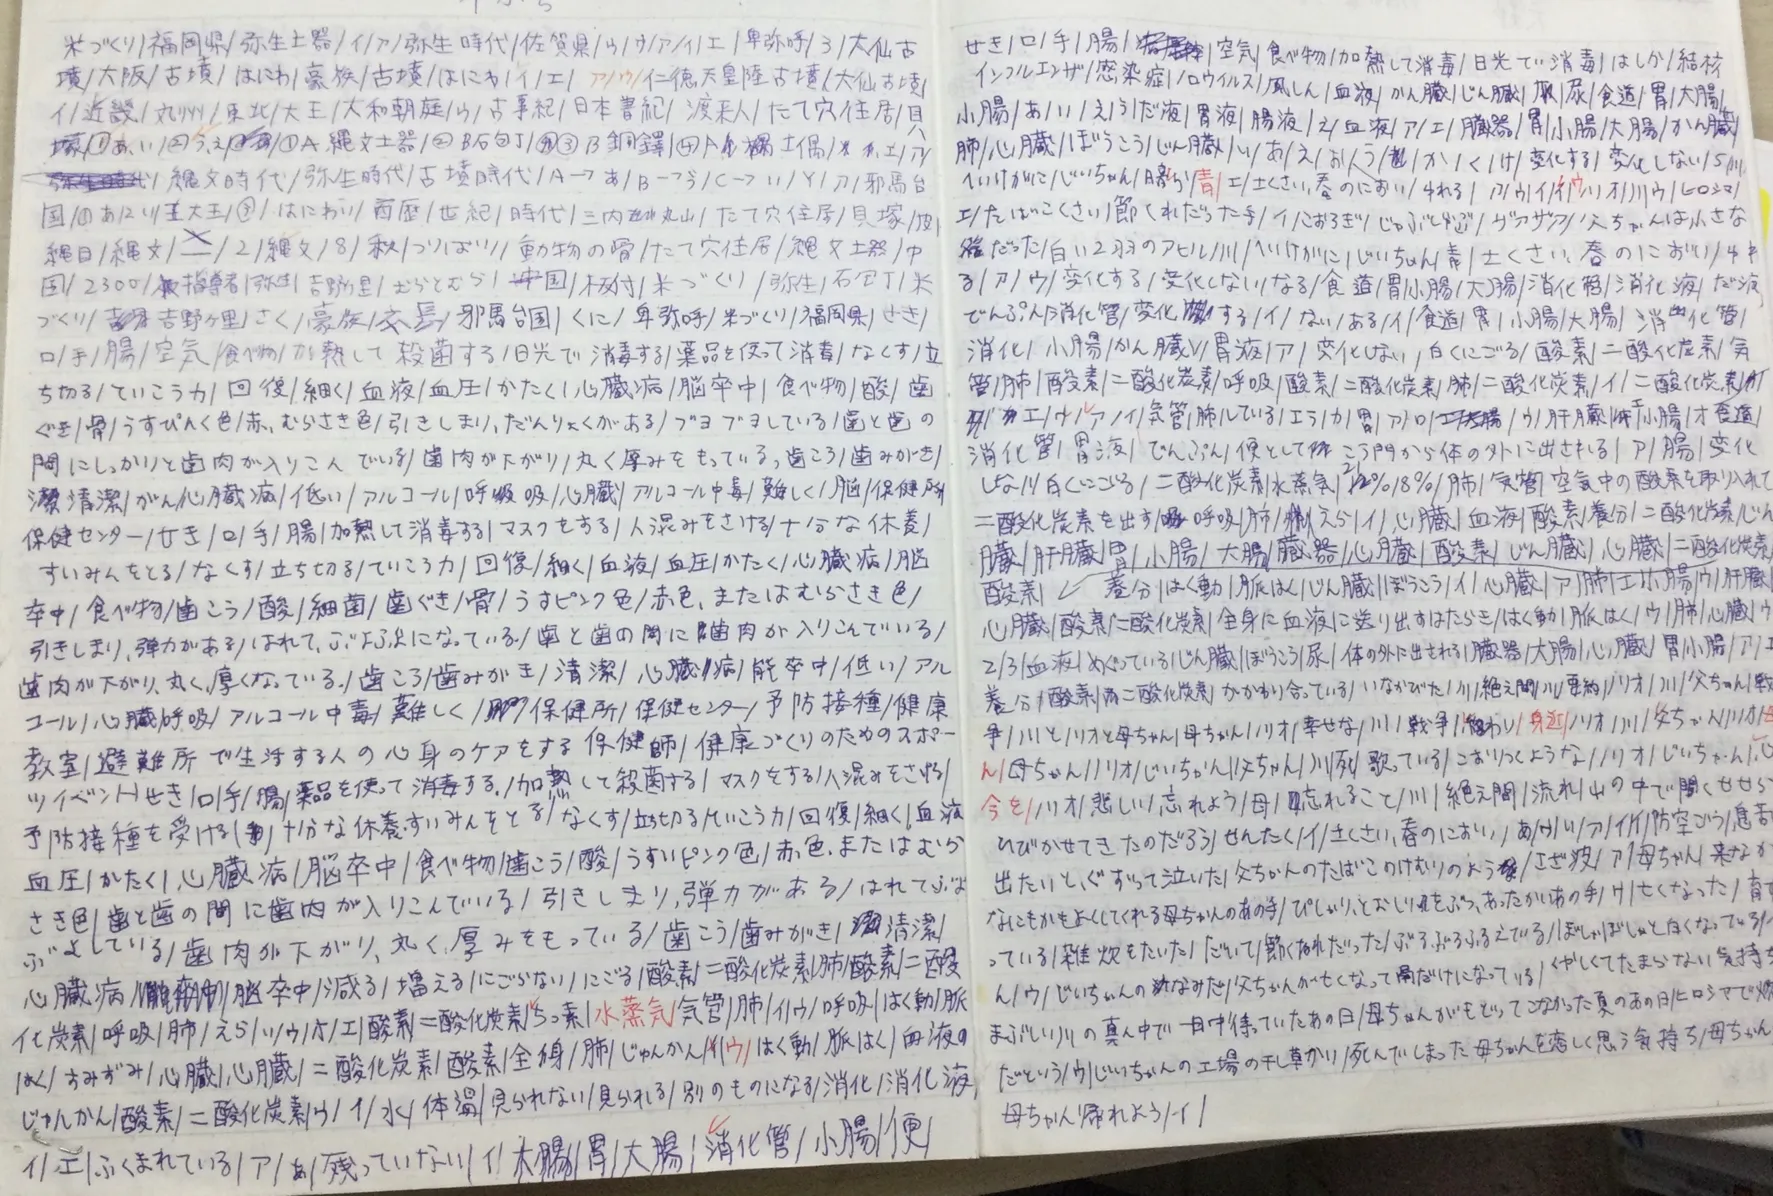 米づくり/福岡県/弥生土器/イ/ア/弥生時代/佐賀県/ウ/ウ/ア/イ/エ/卑弥呼/3/大仙古
墳/大阪/古墳/はにわ/豪族/古墳/はにわ/イ/エ/ア/ウ/仁徳天皇陸古墳/大仙古墳
イ/近畿/九州/東北/大王/大和朝庭/ウ/古事紀/日本書紀/渡来人/たて穴住居/貝
塚/①あ、い/②う、え/①A縄文土器/②B石包丁/③B銅鐸/④A土偶/エ/ア/
縄文時代/弥生時代/古墳時代/A→あ/B→う/C→い/Y/ア/邪馬台
国/①あ②い/大王/はにわ/西歴/世紀/時代/三内丸山/たて穴住居/貝塚/
縄目/縄文/二/2/縄文/8/秋/つりばり/動物の骨/たて穴住居/縄文土器/中
国/2300/指導者/弥生/吉野ヶ里/むらとむら/中国/板付/米づくり/弥生/石包丁/米
づくり/吉野ヶ里/さく/豪族/邪馬台国/くに/卑弥呼/米づくり/福岡県/せき/
口/手/腸/空気/食べ物/加熱して殺菌する/日光で消毒する/薬品を使って消毒/なくす/立
ち切る/ていこう力/回復/細く/血液/血圧/かたく/心臓病/脳卒中/食べ物/酸/歯
ぐき/骨/うすぴんく色/赤、むらさき色/引きしまり、だんりょくがある/ブヨブヨしている/歯と歯の
間にしっかりと歯肉が入りこんでいる/歯肉が下がり/丸く厚みをもっている、歯こう/歯みがき/
清潔/がん/心臓病/低い/アルコール/呼吸/心臓/アルコール中毒/難しく/脳/保健所
保健センター/せき/口/手/腸/加熱して消毒する/マスクをする/人混みをさける/十分な休養/
すいみんをとる/なくす/立ち切る/ていこう力/回復/細く/血液/血圧/かたく/心臓病/脳
卒中/食べ物/歯こう/酸/細菌/歯ぐき/骨/うすピンク色/赤色、またはむらさき色/
引きしまり、弾力がある/はれて、ぶよぶよになっている/歯と歯の間に歯肉が入りこんでいる/
歯肉が下がり、丸く、厚くなっている。/歯こう/歯みがき/清潔/心臓病/脳卒中/低い/アル
コール/心臓/呼吸/アルコール中毒/難しく/保健所/保健センター/予防接種/健康
教室/避難所で生活する人の心身のケアをする保健師/健康づくりのためのスポー
ツイベント/せき/口/手/腸/薬品を使って消毒する。/加熱して殺菌する/マスクをする/人混みをさける/
予防接種を受ける/十分な休養、すいみんをとる/なくす/立ち切る/ていこう力/回復/細く/血液
血圧/かたく/心臓病/脳卒中/食べ物/歯こう/酸/うすいピンク色/赤色、またはむら
さき色/歯と歯の間に歯肉が入りこんでいる/引きしまり、弾力がある/はれてぶよ
ぶよしている/歯肉が下がり、丸く、厚みをもっている/歯こう/歯みがき/清潔/
心臓病/脳卒中/減る/増える/にごらない/にごる/酸素/二酸化炭素/肺/酸素/二酸
化炭素/呼吸/肺/えら/ウ/オ/エ/酸素/二酸化炭素/ちっ素/水蒸気/気管/肺/イ/ウ/呼吸/はく動/脈
はく/すみずみ/心臓/心臓/二酸化炭素/酸素/全身/肺/じゅんかん/イ/ウ/はく動/脈はく/血液の
じゅんかん/酸素/二酸化炭素/ウ/イ/水/体温/見られない/見られる/別のものになる/消化/消化液
イ/エ/ふくまれている/ア/あ/残っていない/イ/大腸/胃/大腸/消化管/小腸/便/
せき/口/手/腸/空気/食べ物/加熱して消毒/日光でい消毒/はしか/結核
インフルエンザ/感染症/ノロウイルス/風しん/血液/かん臓/じん臓/尿/食道/胃/大腸/
小腸/あ/い/え/う/だ液/胃液/腸液/え/血液/ア/エ/臓器/胃/小腸/大腸/かん臓/
肺/心臓/ぼうこう/じん臓/い/あ/え/お/う/か/く/け/変化する/変化しない/5/川
へいけがに/じいちゃん/青/エ/土くさい、春のにおい/4れる/ア/ウ/イ/ノリオ/川/ウ/ヒロシマ
エ/たばこくさい/節くれだった手/イ/こおろぎ/じゃぶじゃぶ/ザアザア/父ちゃんは小さな
だった/白い2羽のアヒル/川/へいけがに/じいちゃん/青/土くさい、春のにおい/
る/ア/ウ/変化する/変化しない/なる/食道/胃/小腸/大腸/消化管/消化液/だ液
でんぷん/消化管/変化する/イ/ない/ある/イ/食道/胃/小腸/大腸/消化管/
消化/小腸/かん臓/胃液/ア/変化しない/白くにごる/酸素/二酸化炭素/気
管/肺/酸素/二酸化炭素/呼吸/酸素/二酸化炭素/肺/二酸化炭素/イ/二酸化炭素/
エ/ウ/ア/イ/気管/肺/している/エラ/カ/胃/ウ/肝臓/小腸/オ食道
消化管/胃液/でんぷん/便としてこう門から体の外に出される/ア/腸/変化
しない/白くにごる/二酸化炭素/水蒸気/21%/18%/肺/気管/空気中の酸素を取り入れて
二酸化炭素を出す/呼吸/肺/えら/イ/心臓/血液/酸素/養分/二酸化炭素/じん
臓/肝臓/胃/小腸/大腸/臓器/心臓/酸素/じん臓/心臓/二酸化炭素
酸素/養分/はく動/脈はく/じん臓/ぼうこう/イ/心臓/ア/肺/エ/小腸/ウ/肝臓/
心臓/酸素/二酸化炭素/全身に血液に送り出すはたらき/はく動/脈はく/ウ/肺/心臓/ウ
2/3/血液/めぐっている/じん臓/ぼうこう/尿/体の外に出される/臓器/大腸/心臓/胃/小腸/ア/エ
養分/酸素/二酸化炭素/かかわり合っている/いなかびた/川/絶え間/川/要約/ノリオ/川/父ちゃん/戦
争/川とノリオと母ちゃん/母ちゃん/ノリオ/幸せな/川/戦争/終わり/身近/ノリオ/川/父ちゃん/ノリオ/母
ん/母ちゃん/ノリオ/じいちゃん/父ちゃん/川/死/歌っている/こおりつくような/ノリオ/じいちゃん/心
今を/ノリオ/悲しい/忘れよう/母/忘れること/川/絶え間/流れ/山の中で聞くせせら
ひびかせてきたのだろう/せんたく/イ/土くさい、春のにおい/あ/う/い/ア/イ/防空ごう/息苦
出たいと、ぐずって泣いた/父ちゃんのたばこのけむりのよう/さざ波/ア/母ちゃん/来なか
なにもかもよくしてくれる母ちゃんのあの手/ぴしゃり、とおしりをぶつ、あったかいあの手/ウ/亡くなった/育て
っている/雑炊をたいた/だいて/節くれだった/ぶるぶるふるえている/ぼしゃぼしゃと白くなっている/
ん/ウ/じいちゃんのなみだ/父ちゃんが亡くなって骨だけになっている/くやしくてたまらない気持ち
まぶしい川の真ん中で一日中待っていたあの日/母ちゃんがもどってこなかった夏のあの日/ヒロシマで焼
だという/ウ/じいちゃんの工場の干し草かり/死んでしまった母ちゃんを恋しく思う気持ち/母ちゃん
母ちゃん帰れよう/イ/